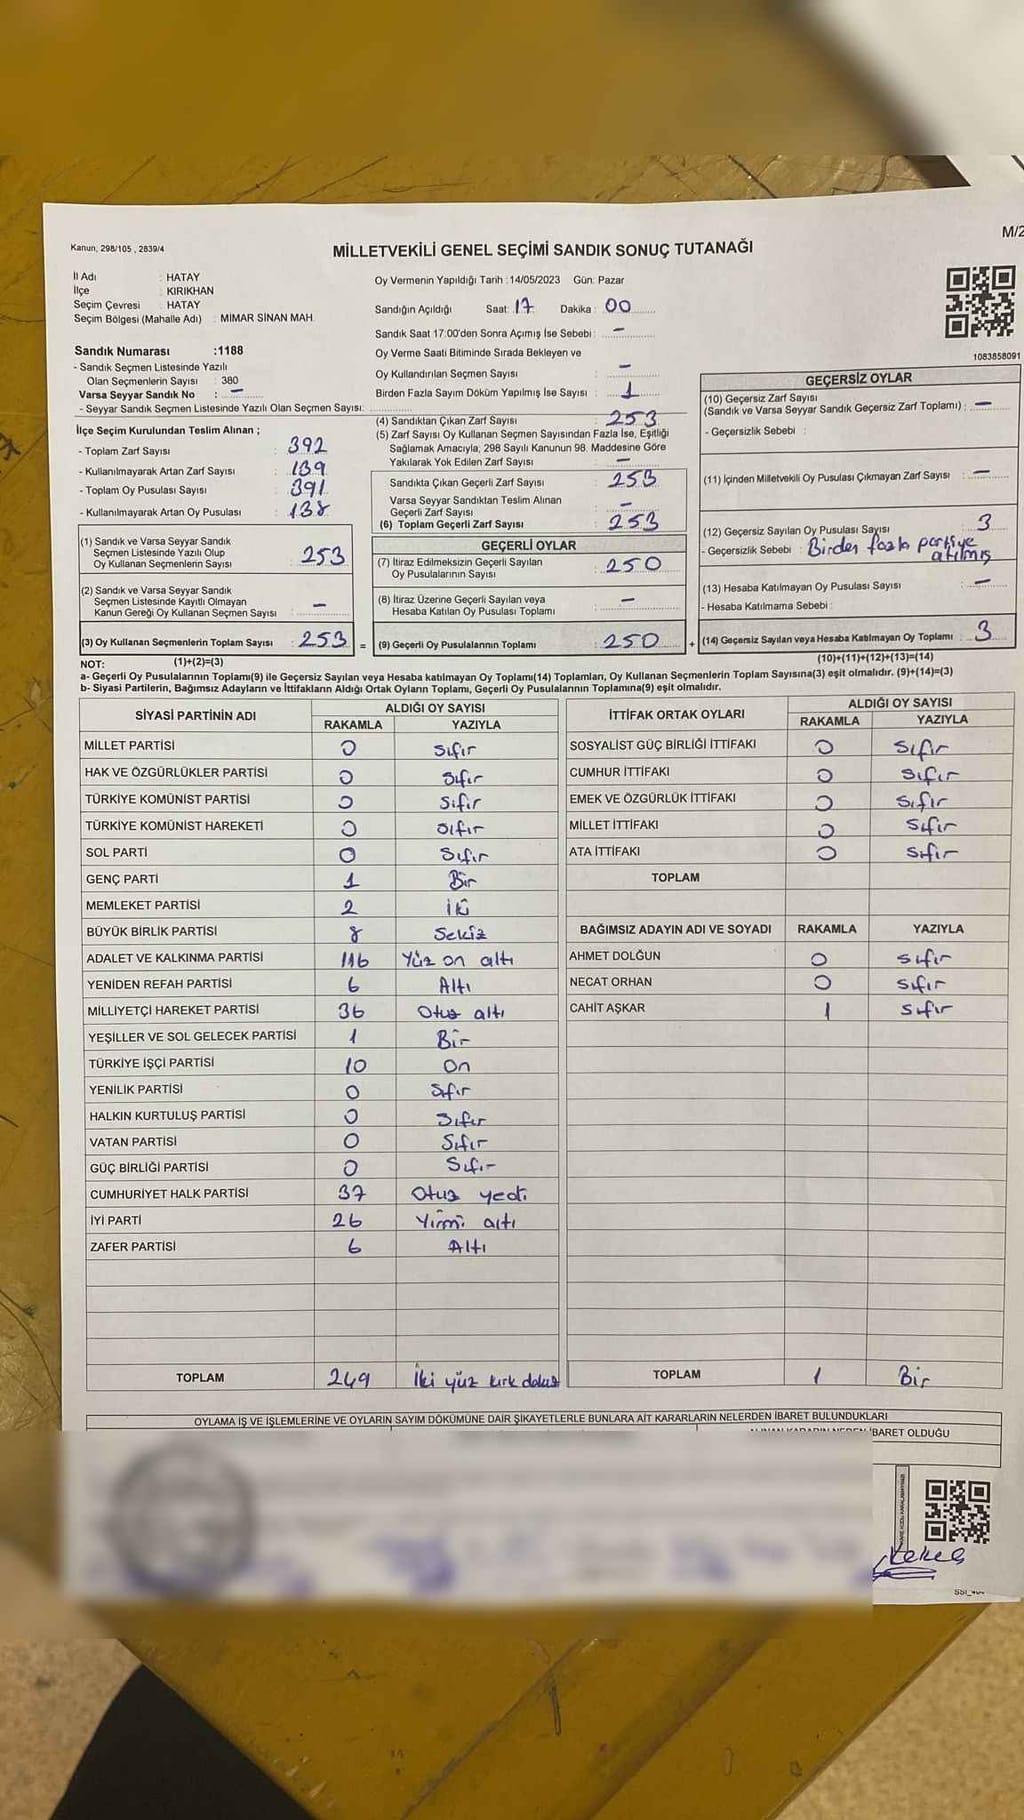 Kanun, 298/105 , 2839/4
MİLLETVEKİLİ GENEL SEÇİMİ SANDIK SONUÇ TUTANAĞI
M/2
İl Adı : HATAY
İlçe : KIRIKHAN
Seçim Çevresi : HATAY
Seçim Bölgesi (Mahalle Adı) : MİMAR SİNAN MAH.
Oy Vermenin Yapıldığı Tarih : 14/05/2023 Gün: Pazar
Sandığın Açıldığı Saat: 17 Dakika : 00
Sandık Saat 17:00'den Sonra Açımış İse Sebebi : -
Oy Verme Saati Bitiminde Sırada Bekleyen ve
Oy Kullandırılan Seçmen Sayısı : -
Birden Fazla Sayım Döküm Yapılmış İse Sayısı : 1
1083858091
Sandık Numarası :1188
- Sandık Seçmen Listesinde Yazılı
Olan Seçmenlerin Sayısı : 380
Varsa Seyyar Sandık No : -
- Seyyar Sandık Seçmen Listesinde Yazılı Olan Seçmen Sayısı:
İlçe Seçim Kurulundan Teslim Alınan ;
- Toplam Zarf Sayısı : 392
- Kullanılmayarak Artan Zarf Sayısı : 139
- Toplam Oy Pusulası Sayısı : 391
- Kullanılmayarak Artan Oy Pusulası : 138
(1) Sandık ve Varsa Seyyar Sandık
Seçmen Listesinde Yazılı Olup
Oy Kullanan Seçmenlerin Sayısı : 253
(2) Sandık ve Varsa Seyyar Sandık
Seçmen Listesinde Kayıtlı Olmayan
Kanun Gereği Oy Kullanan Seçmen Sayısı : -
(3) Oy Kullanan Seçmenlerin Toplam Sayısı : 253 =
(1)+(2)=(3)
(4) Sandıktan Çıkan Zarf Sayısı : 253
(5) Zarf Sayısı Oy Kullanan Seçmen Sayısından Fazla İse, Eşitliği
Sağlamak Amacıyla, 298 Sayılı Kanunun 98. Maddesine Göre
Yakılarak Yok Edilen Zarf Sayısı : -
Sandıkta Çıkan Geçerli Zarf Sayısı : 253
Varsa Seyyar Sandıktan Teslim Alınan
Geçerli Zarf Sayısı : -
(6) Toplam Geçerli Zarf Sayısı : 253
GEÇERLİ OYLAR
(7) İtiraz Edilmeksizin Geçerli Sayılan
Oy Pusulalarının Sayısı : 250
(8) İtiraz Üzerine Geçerli Sayılan veya
Hesaba Katılan Oy Pusulası Toplamı : -
(9) Geçerli Oy Pusulalarının Toplamı : 250 +
GEÇERSİZ OYLAR
(10) Geçersiz Zarf Sayısı
(Sandık ve Varsa Seyyar Sandık Geçersiz Zarf Toplamı) : -
- Geçersizlik Sebebi :
(11) İçinden Milletvekili Oy Pusulası Çıkmayan Zarf Sayısı : -
(12) Geçersiz Sayılan Oy Pusulası Sayısı : 3
- Geçersizlik Sebebi : Birden fazla partiye
atılmış
(13) Hesaba Katılmayan Oy Pusulası Sayısı : -
- Hesaba Katılmama Sebebi :
(14) Geçersiz Sayılan veya Hesaba Katılmayan Oy Toplamı : 3
(10)+(11)+(12)+(13)=(14)
NOT:
a- Geçerli Oy Pusulalarının Toplamı(9) ile Geçersiz Sayılan veya Hesaba katılmayan Oy Toplamı(14) Toplamları, Oy Kullanan Seçmenlerin Toplam Sayısına(3) eşit olmalıdır. (9)+(14)=(3)
b- Siyasi Partilerin, Bağımsız Adayların ve İttifakların Aldığı Ortak Oyların Toplamı, Geçerli Oy Pusulalarının Toplamına(9) eşit olmalıdır.
SİYASİ PARTİNİN ADI ALDIĞI OY SAYISI
RAKAMLA YAZIYLA
MİLLET PARTİSİ 0 Sıfır
HAK VE ÖZGÜRLÜKLER PARTİSİ 0 Sıfır
TÜRKİYE KOMÜNİST PARTİSİ 0 Sıfır
TÜRKİYE KOMÜNİST HAREKETİ 0 Sıfır
SOL PARTİ 0 Sıfır
GENÇ PARTİ 1 Bir
MEMLEKET PARTİSİ 2 İki
BÜYÜK BİRLİK PARTİSİ 8 Sekiz
ADALET VE KALKINMA PARTİSİ 116 Yüz on altı
YENİDEN REFAH PARTİSİ 6 Altı
MİLLİYETÇİ HAREKET PARTİSİ 36 Otuz altı
YEŞİLLER VE SOL GELECEK PARTİSİ 1 Bir
TÜRKİYE İŞÇİ PARTİSİ 10 On
YENİLİK PARTİSİ 0 Sıfır
HALKIN KURTULUŞ PARTİSİ 0 Sıfır
VATAN PARTİSİ 0 Sıfır
GÜÇ BİRLİĞİ PARTİSİ 0 Sıfır
CUMHURİYET HALK PARTİSİ 37 Otuz yedi
İYİ PARTİ 26 Yirmi altı
ZAFER PARTİSİ 6 Altı
TOPLAM 249 İki yüz kırk dokuz
İTTİFAK ORTAK OYLARI ALDIĞI OY SAYISI
RAKAMLA YAZIYLA
SOSYALİST GÜÇ BİRLİĞİ İTTİFAKI 0 Sıfır
CUMHUR İTTİFAKI 0 Sıfır
EMEK VE ÖZGÜRLÜK İTTİFAKI 0 Sıfır
MİLLET İTTİFAKI 0 Sıfır
ATA İTTİFAKI 0 Sıfır
TOPLAM
BAĞIMSIZ ADAYIN ADI VE SOYADI RAKAMLA YAZIYLA
AHMET DOLĞUN 0 Sıfır
NECAT ORHAN 0 Sıfır
CAHİT AŞKAR 1 Sıfır
TOPLAM 1 Bir
OYLAMA İŞ VE İŞLEMLERİNE VE OYLARIN SAYIM DÖKÜMÜNE DAİR ŞİKAYETLERLE BUNLARA AİT KARARLARIN NELERDEN İBARET BULUNDUKLARI
İBARET OLDUĞU